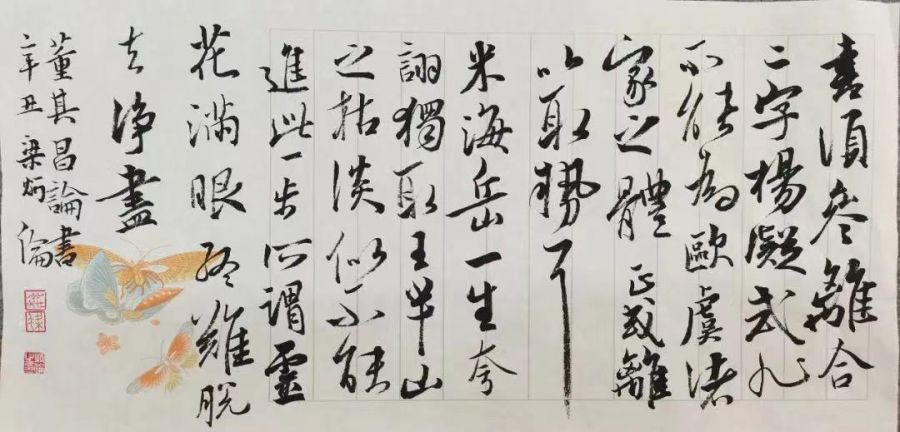 書須參離合
二字楊凝式非
不能為歐虞諸
家之體正或離
以取勢耳
米海岳一生夸
詡獨取王半山
之枯淡似不能
進此一步所謂靈
花滿眼終難脫
去淨盡
董其昌論書
辛丑梁炳倫